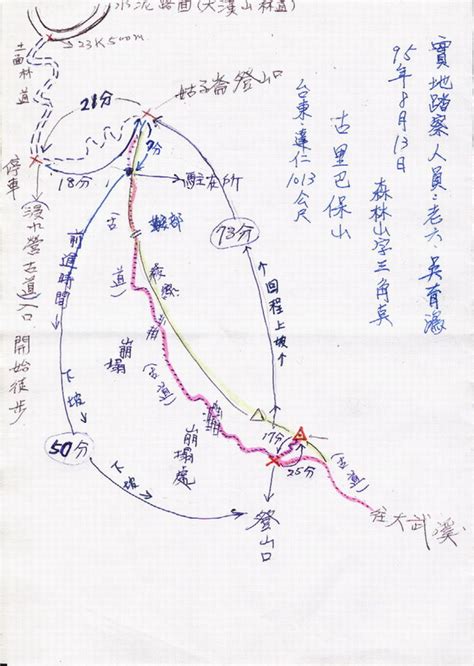 水泥路面(大漢山林道)
23K500m
土面林道
實地踏察人員:老六.吳育
95年8月13日
森林山字三角奌
古里巴保山
台東.達仁1013公尺
姑子崙登山口
21分
7分
18分
停車
浸水營古道入口.開始徒步
駐在所
鞍部
前進時間
稜線
(古道)
73分
回程上坡
崩塌
崩塌處
下坡
50分
下坡
17分
25分
(古道)
登山口
往大武溪